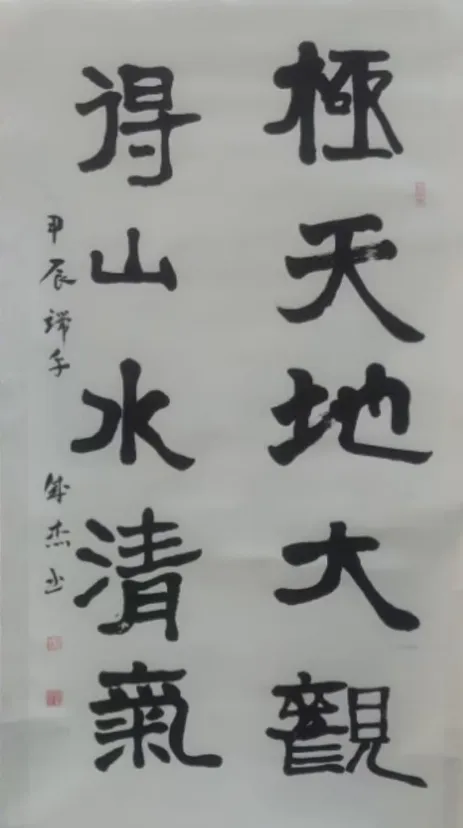 極天地大觀
得山水清氣
甲辰端午
杰书